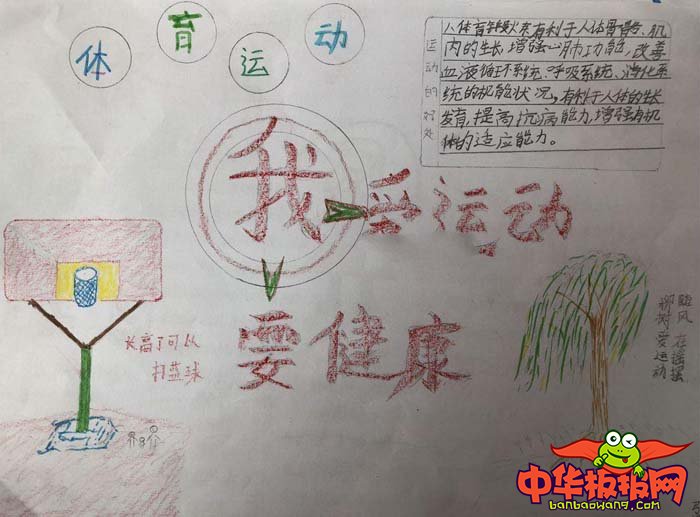 体育运动
运动的好处
1、体育锻炼有利于人体骨骼、肌
肉的生长,增强心肺功能,改善
血液循环系统、呼吸系统、消化系
统的机能状况,有利于人体的生长
发育,提高抗病能力,增强有机
体的适应能力。
我爱运动
要健康
长高了可以
打蓝球
随风 在摇摆
柳树爱运动
中华板报网
banbaowang.com